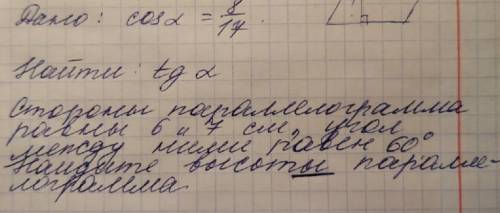 Дано: cosα = 8/17.
Найти: tg α
Стороны параллелограмма
равны 6 и 7 см, угол
между ними равен 60°
Найдите высоты паралле-
лограмма.